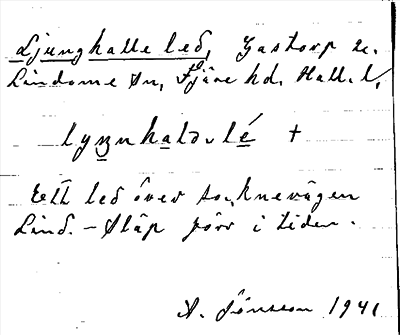 Ljunghalle led, Gastorp u.
Lindome sn, Fjäre hd. Hall. l.
lyŋnhalds lé +
Ett led över socknevägen
Lind. - Släp förr i tiden.
A. Jönsson 1941